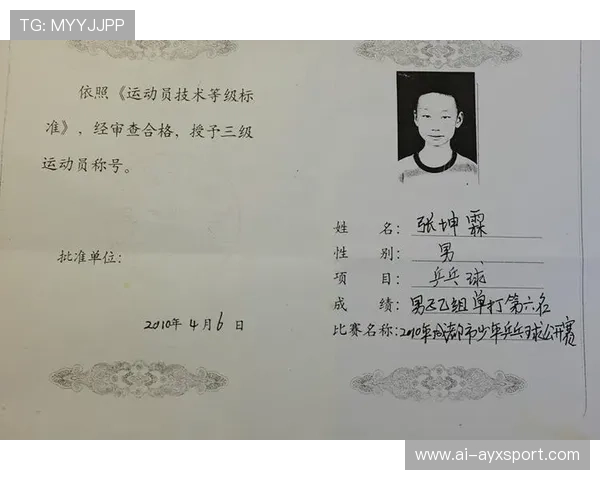 TG: MYYJJPP
依照《运动员技术等级标
准》，经审查合格，授予三级
运动员称号。
批准单位：
2010年 4 月 6 日
姓 名：张坤霖
性 别：男
项 目：乒乓球
成 绩：男子乙组单打第六名
比赛名称：2010年成都市少年乒乓球公开赛
www.ai-ayxsport.com